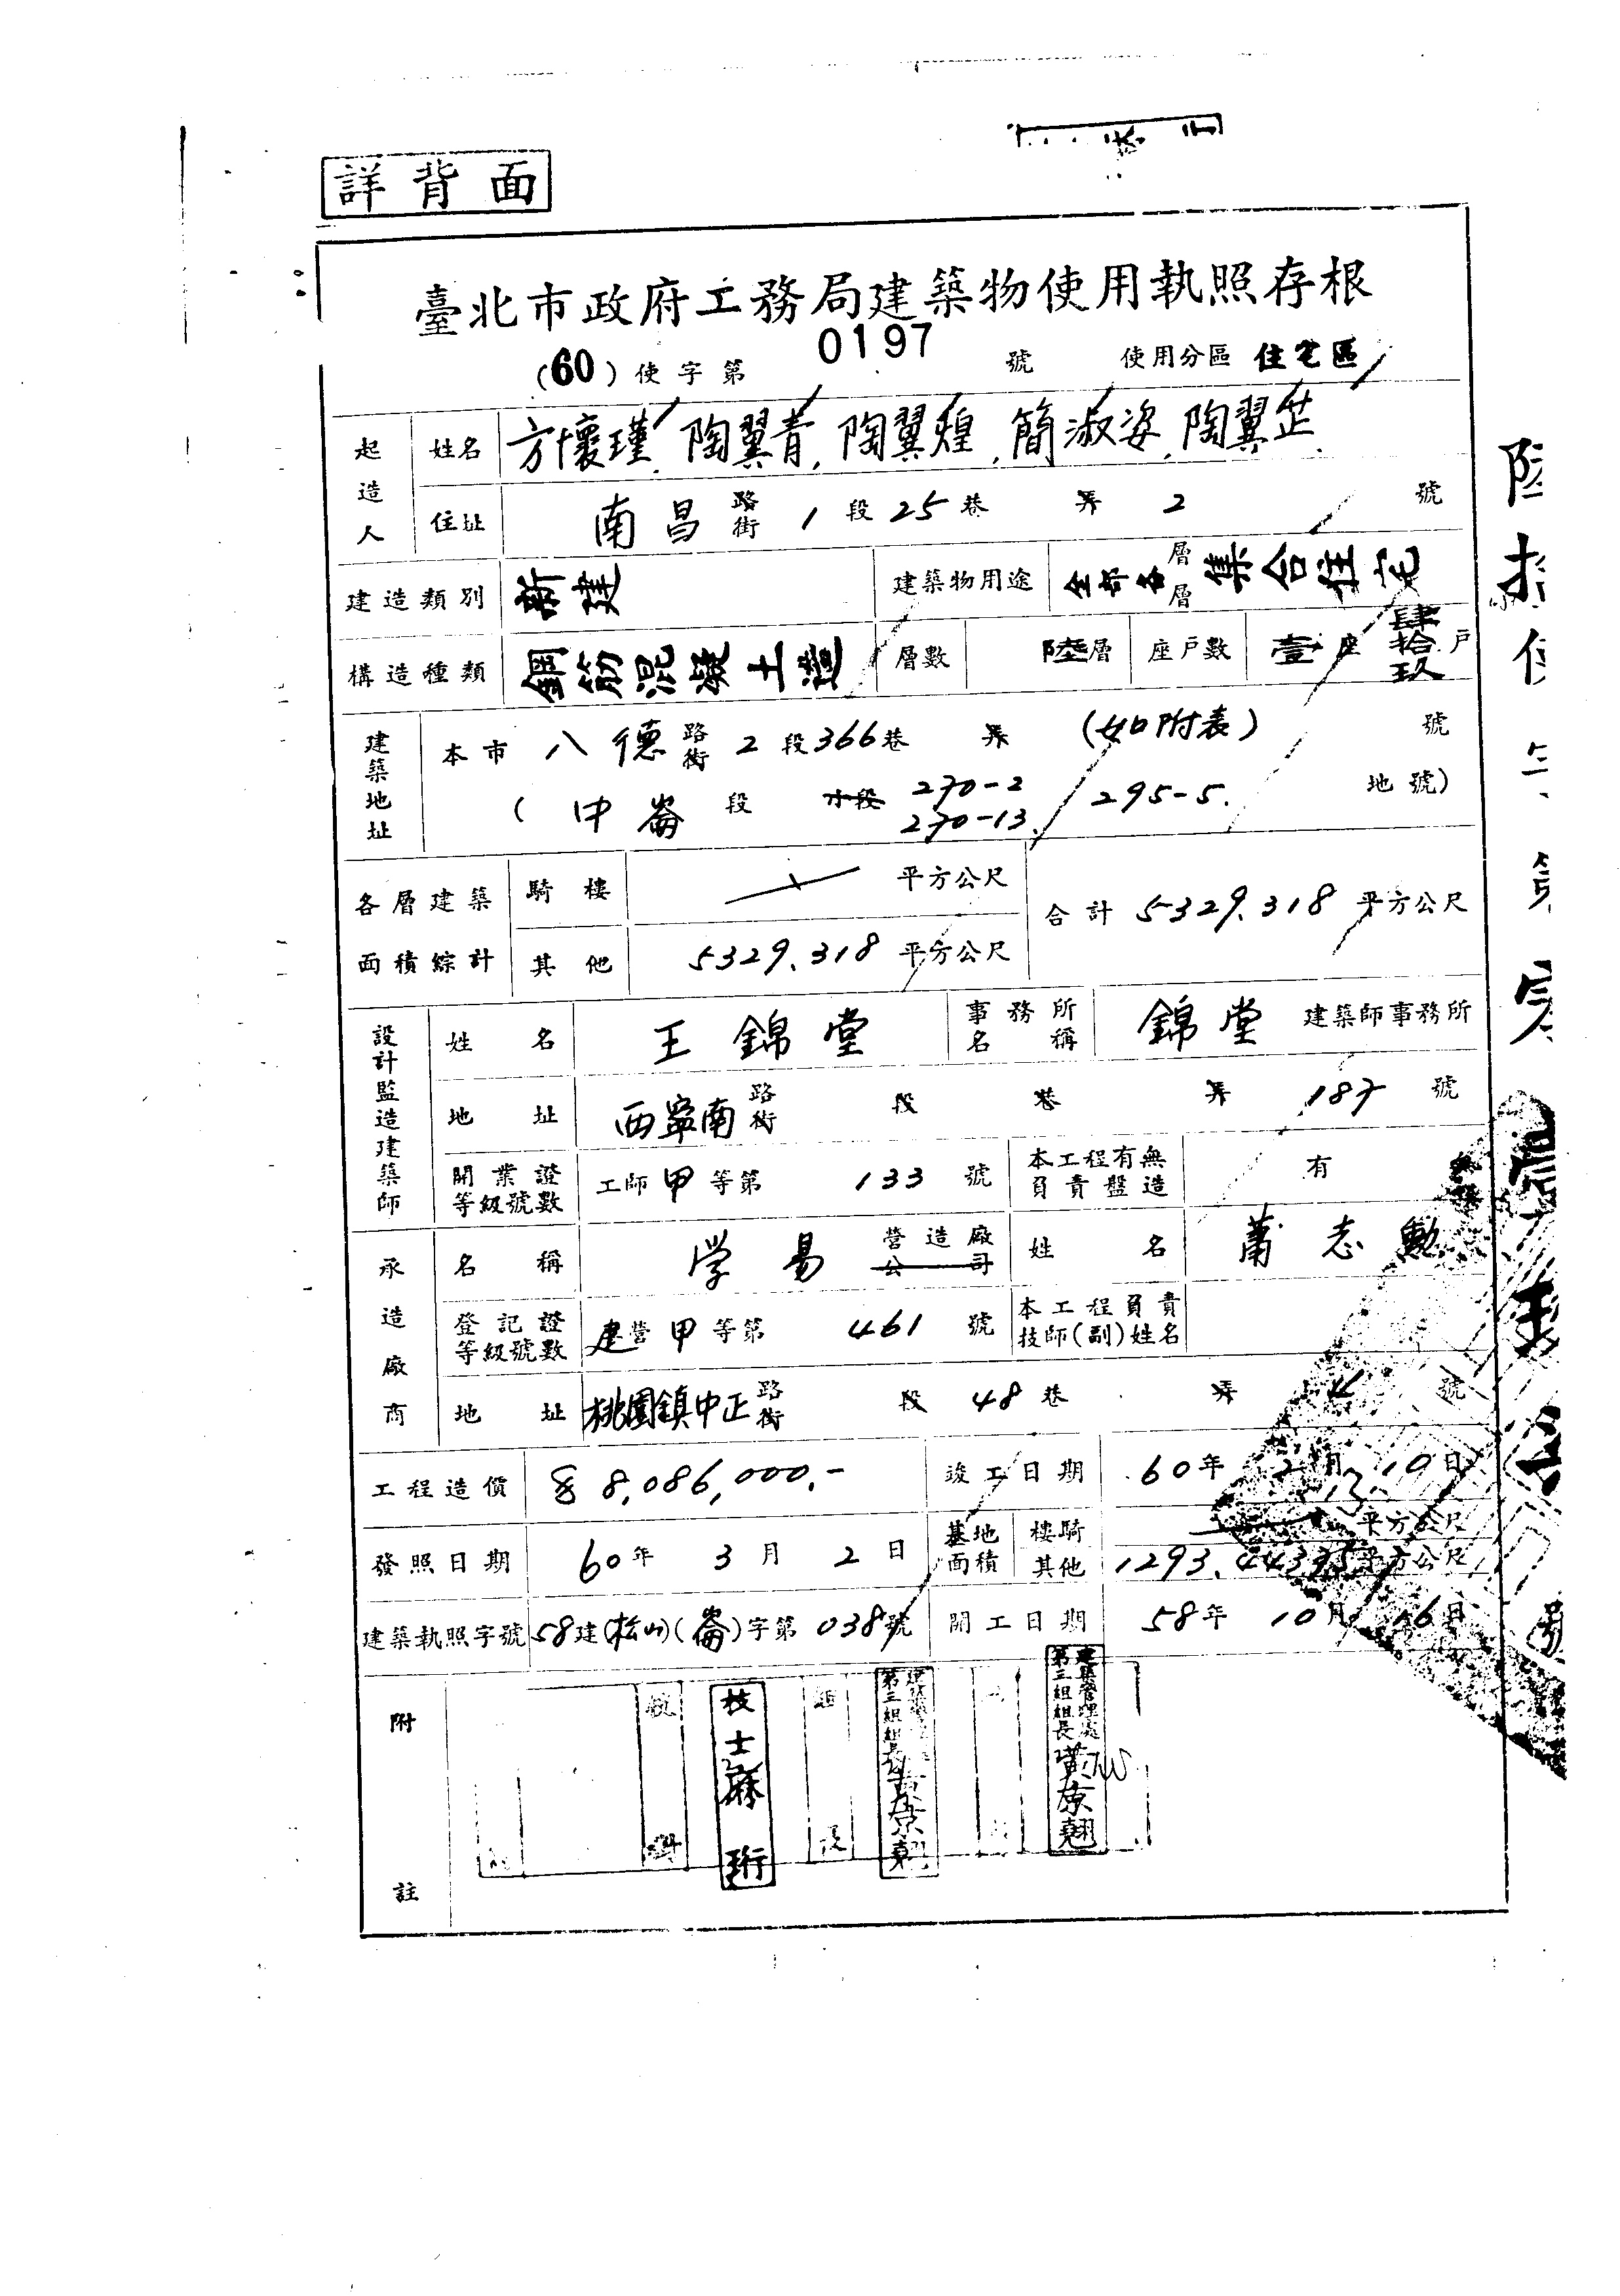 詳背面
臺北市政府工務局建築物使用執照存根
(60)使字第 0197 號 使用分區 住宅區
起造人 姓名 方懷瑾、陶翼青、陶翼煌、簡淑姿、陶翼芷
住址 南昌 路街 1 段 25 巷 弄 2 號
建造類別 新建 建築物用途 全部各層層 集合住宅
構造種類 鋼筋混凝土造 層數 陸層 座戶數 壹座 肆拾玖戶
建築地址 本市 八德 路街 2 段 366 巷 弄 (如附表) 號
(中崙 段 小段 270-2 270-13 295-5. 地號)
各層建築面積綜計 騎樓 平方公尺 合計 5329.318 平方公尺
其他 5329.318 平方公尺
設計監造建築師 姓名 王錦堂 事務所名稱 錦堂 建築師事務所
地址 西寧南 路街 段 巷 弄 187 號
開業證等級號數 工師 甲 等第 133 號 本工程有無負責監造 有
承造廠商 名稱 学易 營造廠公司 姓名 蕭志勳
登記證等級號數 建營 甲 等第 461 號 本工程負責技師(副)姓名
地址 桃園鎮中正 路街 段 48 巷 弄 號
工程造價 8,086,000.- 竣工日期 60年 2月 10日
發照日期 60年 3月 2日 基地面積 樓騎 平方公尺
其他 1293.44375 平方公尺
建築執照字號 58建(松山)(崙)字第 038 號 開工日期 58年 10月 16日
附註
技士 麻珩
建築管理處
第三組組長 黃景翹